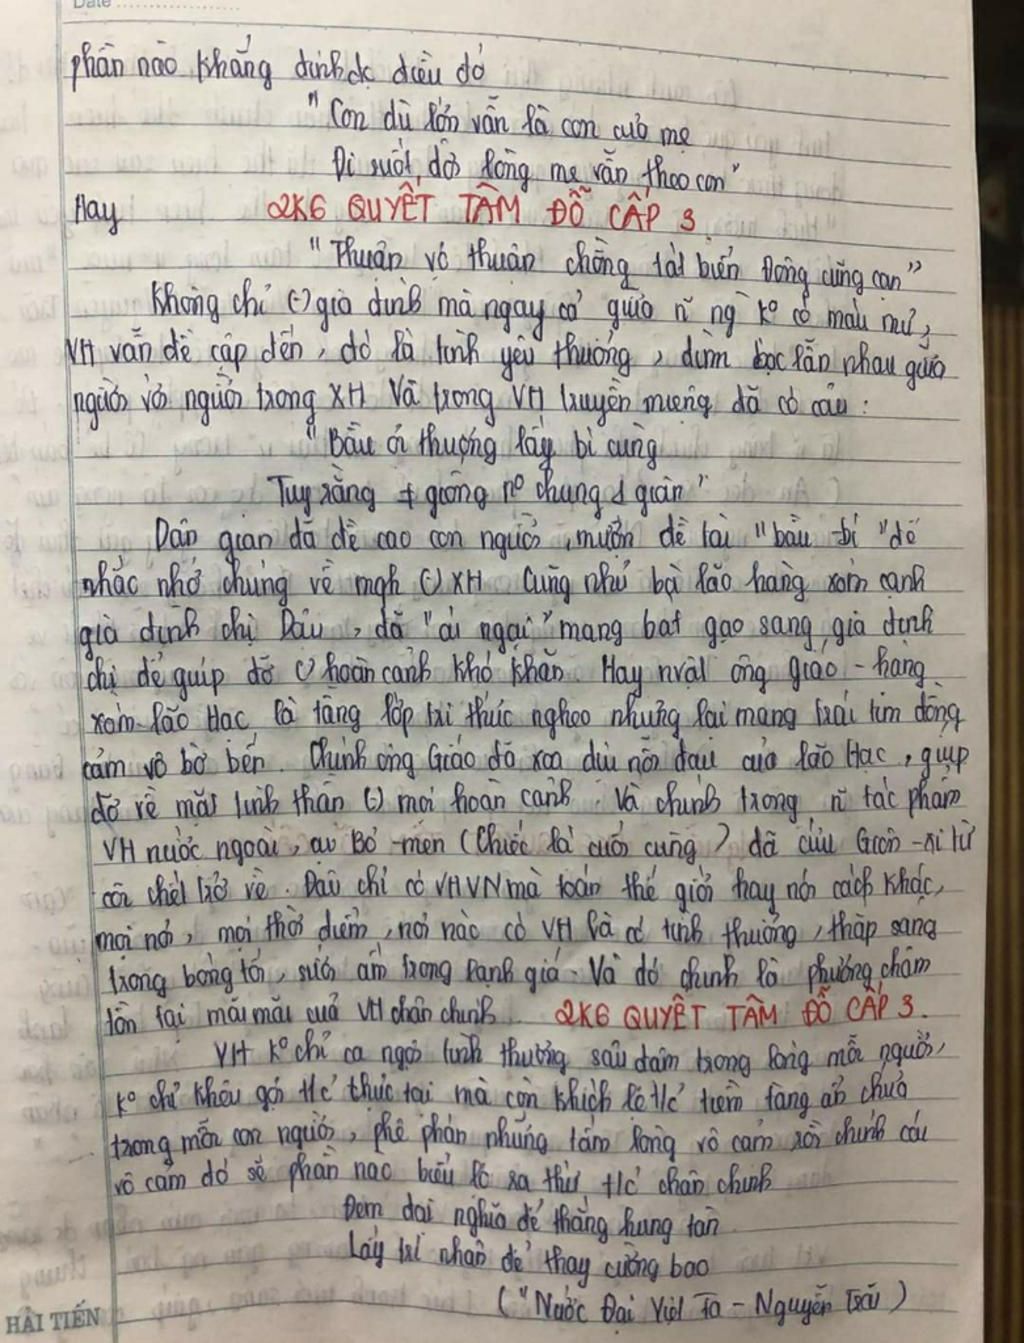 Date
phần nào khẳng định đc điều đó
"Con dù lớn vẫn là con của mẹ
Đi suốt đời lòng mẹ vẫn theo con"
Hay 2K6 QUYẾT TÂM ĐỖ CẤP 3
"Thuận vợ thuận chồng tát biển Đông cũng cạn"
Không chỉ (-) gia đình mà ngay cả giữa n~ ng` k° có máu mủ,
VH vẫn đề cập đến, đó là tình yêu thương, đùm bọc lẫn nhau giữa
người với người trong XH. Và trong VH truyền miệng đã có câu:
"Bầu ơi thương lấy bí cùng
Tuy rằng ≠ giống n° chung 1 giàn"
Dân gian đã đề cao con người, mượn đề tài "bầu - bí" để
nhắc nhở chúng về mqh (-) XH. Cũng như bà lão hàng xóm cạnh
gia đình chị Dậu, đã "ái ngại" mang bát gạo sang gia đình
chị để giúp đỡ (-) hoàn cảnh khó khăn. Hay nvật ông giáo - hàng
xóm lão Hạc là tầng lớp tri thức nghèo nhưng lại mang trái tim đồng
cảm vô bờ bến. Chính ông Giáo đã xoa dịu nỗi đau của lão Hạc, giúp
đỡ về mặt tinh thần (-) mọi hoàn cảnh. Và chính trong n~ tác phẩm
VH nước ngoài, cụ Bơ-men (Chiếc lá cuối cùng) đã cứu Giôn-xi từ
cõi chết trở về. Đâu chỉ có VHVN mà toàn thế giới hay nói cách khác,
mọi nơi, mọi thời điểm, nơi nào có VH là có tình thương, thắp sáng
trong bóng tối, sưởi ấm trong lạnh giá. Và đó chính là phương châm
tồn tại mãi mãi của VH chân chính. 2K6 QUYẾT TÂM ĐỖ CẤP 3.
VH k° chỉ ca ngợi tình thương sâu đậm trong lòng mỗi người,
k° chỉ khêu gợi t/c thực tại mà còn khích lệ t/c tiềm tàng ẩn chứa
trong mỗi con người, phê phán những tấm lòng vô cảm rồi chính cái
vô cảm đó sẽ phần nào biểu lộ ra thứ t/c chân chính
Đem đại nghĩa để thắng hung tàn
Lấy trí nhân để thay cường bạo
("Nước Đại Việt Ta - Nguyễn Trãi)
HẢI TIẾN